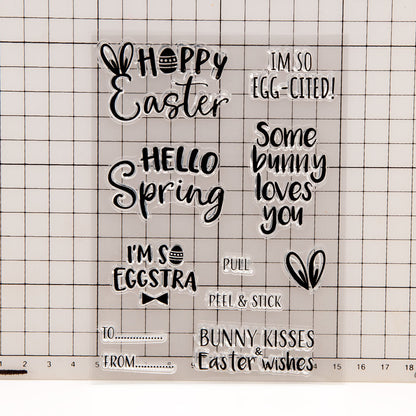 HOPPY
Easter
I'M SO
EGG-CITED!
HELLO
Spring
Some
bunny
loves
you
I'M SO
EGGSTRA
PULL
PEEL & STICK
TO..............
FROM..............
BUNNY KISSES
&
Easter wishes
1 2 3 4 5 6 7 8 9 10 11 12 13 14 15 16 17 18